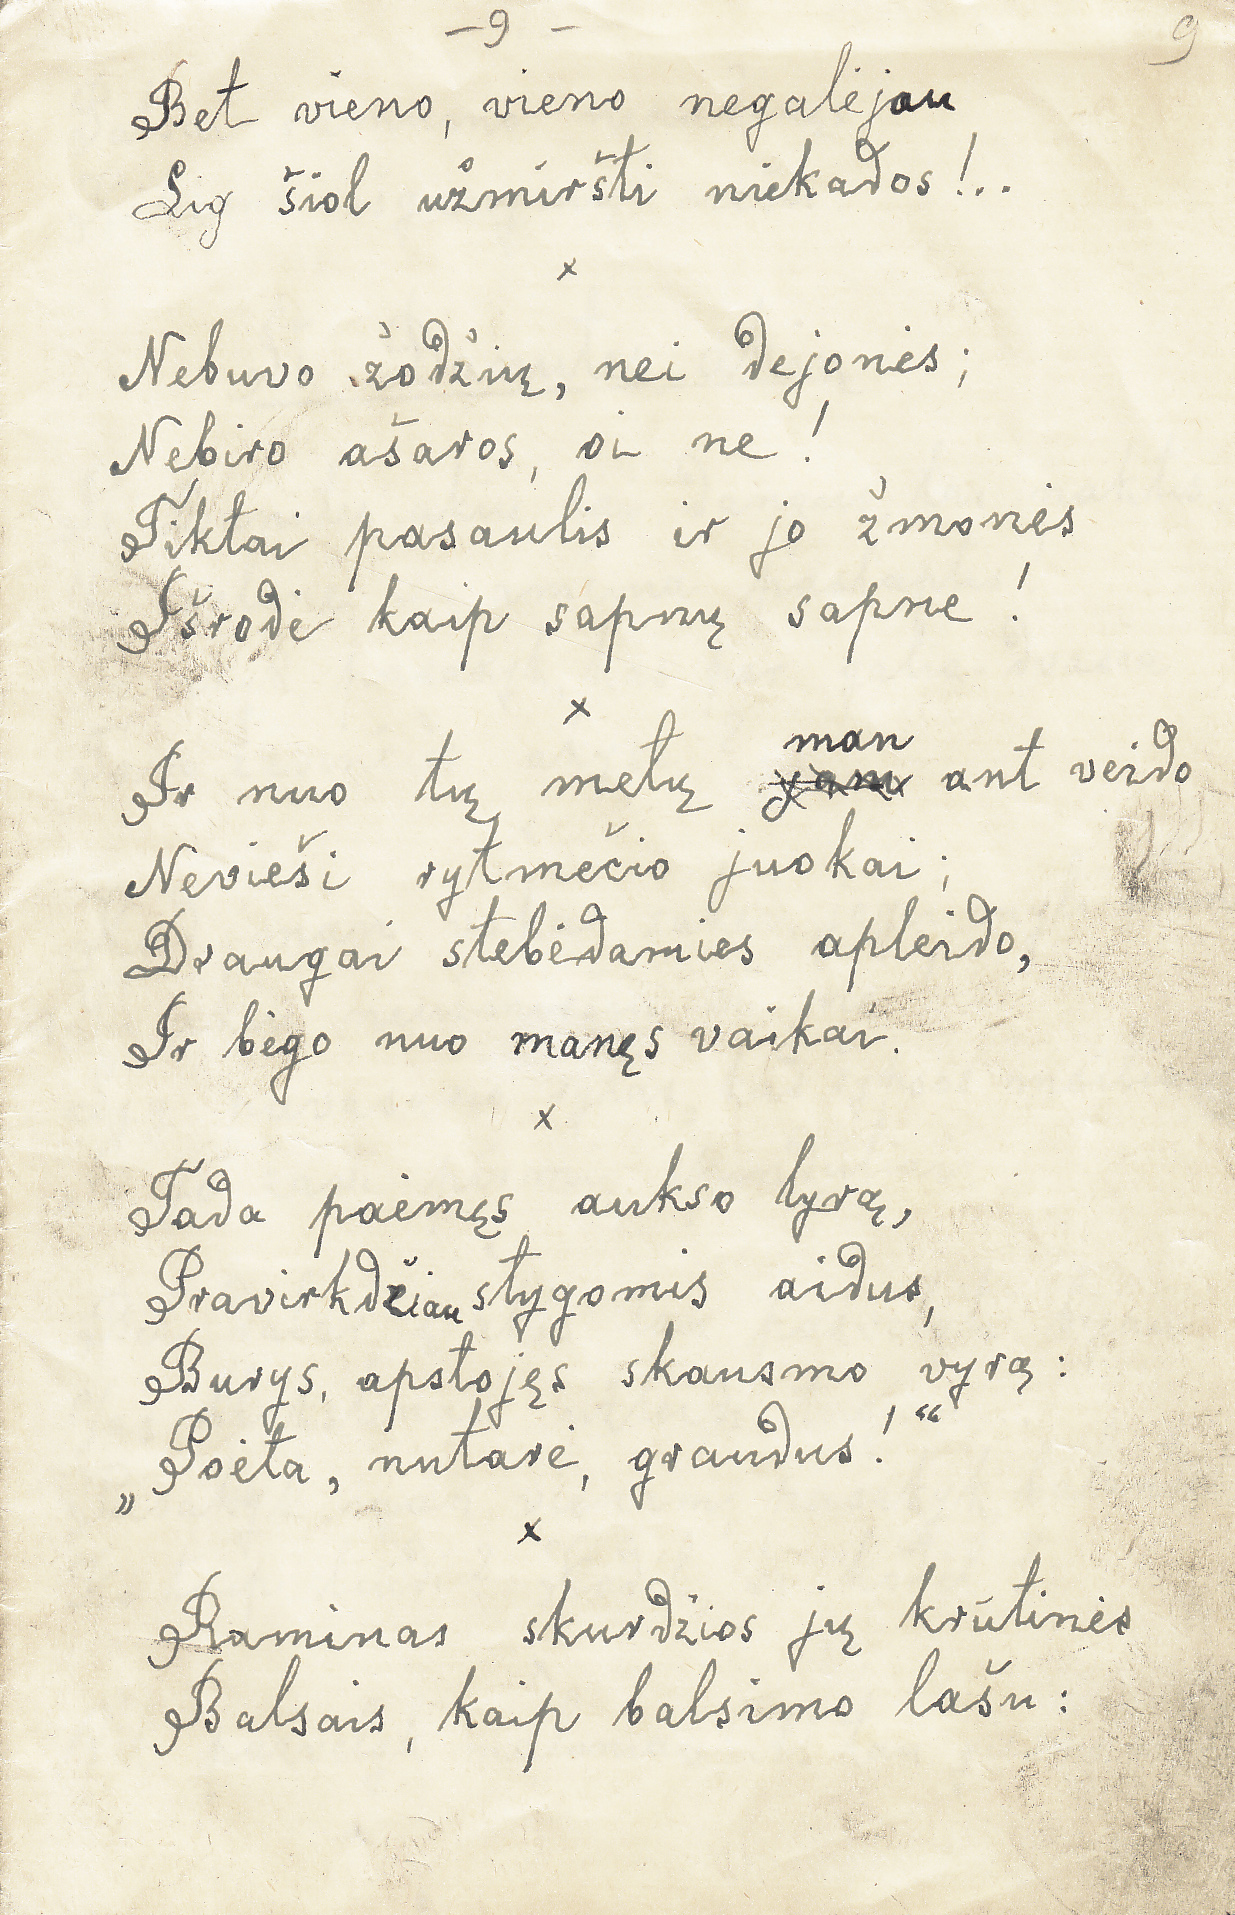 – 9 –
9
Bet vieno, vieno negalėjau
Lig šiol užmiršti niekados!..
x
Nebuvo žodžių, nei dejonės;
Nebiro ašaros, oi ne!
Tiktai pasaulis ir jo žmonės
Išrodė kaip sapnų sapne!
x
man
Ir nuo tų metų jam ant veido
Nevieši rytmečio juokai;
Draugai stebėdamies apleido,
Ir bėgo nuo manęs vaikai.
x
Tada paėmęs aukso lyrą,
Pravirkdžiau stygomis aidus,
Burys, apstojęs skausmo vyrą:
„Poėta, nutarė, graudus!“
x
Raminas skurdžios jų krūtinės
Balsais, kaip balsimo lašu: